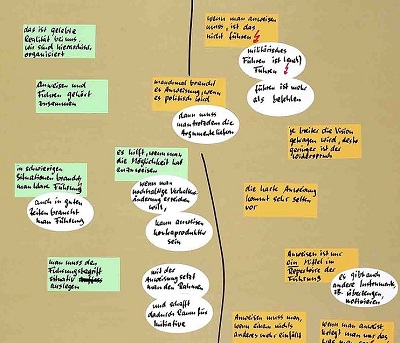 das ist gelebte
Realität bei uns.
wir sind hierarchisch
organisiert
Anweisen und
Führen gehört
zusammen
wenn man anweisen
muss, ist das
nicht führen
militärisches
Führen ist (auch)
Führen
führen ist mehr
als befehlen
manchmal braucht
es Anweisung, wenn
es politisch wird
dann muss
man trotzdem die
Argumente liefern
je breiter die Vision
getragen wird, desto
geringer ist der
Widerspruch
es hilft, wenn man
die Möglichkeit hat
anzuweisen
wenn man
nachhaltige Verhaltens-
änderung erreichen
will,
kann anweisen
kontraproduktiv
sein
in schwierigen
Situationen braucht
man klare Führung
auch in guten
Zeiten braucht
man Führung
die harte Anweisung
kommt sehr selten
vor
man muss den
Führungsbegriff
situativ
auslegen
mit der
Anweisung setzt
man den Rahmen
und schafft
dadurch Raum für
Initiative
Anweisen ist nur
ein Mittel im
Repertoire der
Führung
es gibt auch
andere Instrumente,
z.B. überzeugen,
motivieren
Anweisen muss man,
wenn einem nichts
anderes mehr einfällt
wenn man anweist,
kriegt man nur das,
was man